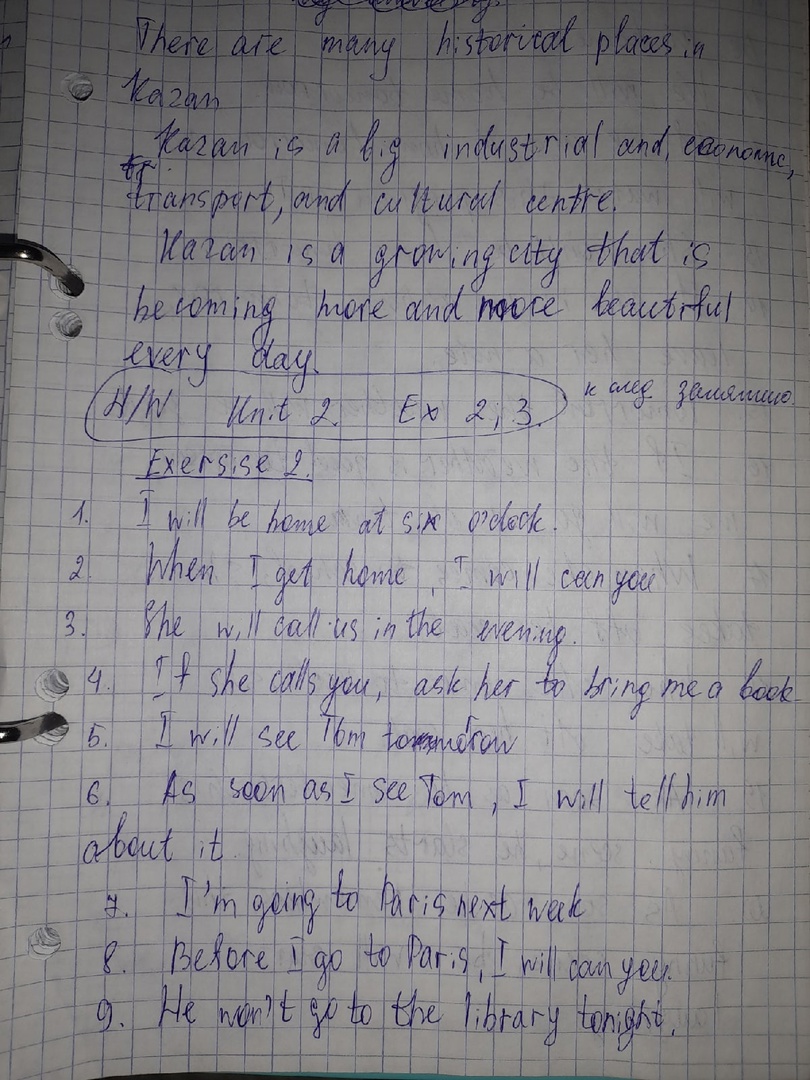 There are many historical places in
Kazan
Kazan is a big industrial and, economic,
transport, and cultural centre.
Kazan is a growing city that is
becoming more and more beautiful
every day.
H/W Unit 2. Ex 2; 3. к след. занятию.
Exersise 2.
1. I will be home at six o'clock.
2. When I get home, I will can you
3. She will call us in the evening.
4. If she calls you, ask her to bring me a book
5. I will see Tom tomorrow
6. As soon as I see Tom, I will tell him
about it.
7. I'm going to Paris next week
8. Before I go to Paris, I will can you.
9. He won't go to the library tonight.